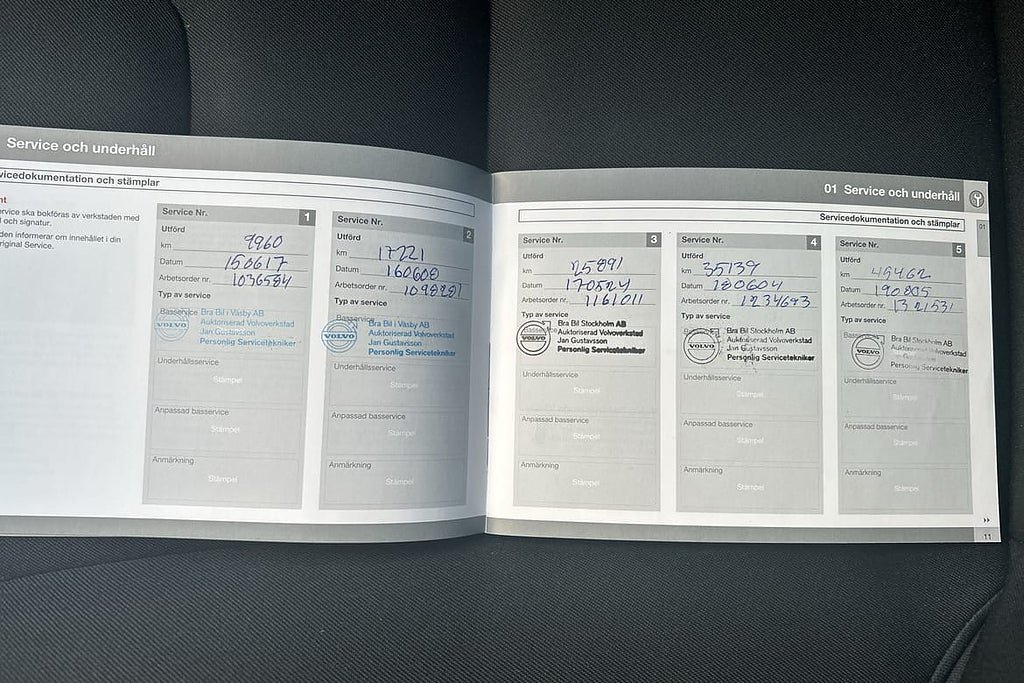 Service och underhåll
vicedokumentation och stämplar
nt
ervice ska bokföras av verkstaden med
l och signatur.
den informerar om innehållet i din
riginal Service.
Service Nr. 1
Utförd
km 9960
Datum 150617
Arbetsorder nr. 1036584
Typ av service
Basservice
VOLVO
Bra Bil i Väsby AB
Auktoriserad Volvoverkstad
Jan Gustavsson
Personlig Servicetekniker
Underhållsservice
Stämpel
Anpassad basservice
Stämpel
Anmärkning
Stämpel
Service Nr. 2
Utförd
km 17221
Datum 160608
Arbetsorder nr. 1098281
Typ av service
Basservice
VOLVO
Bra Bil i Väsby AB
Auktoriserad Volvoverkstad
Jan Gustavsson
Personlig Servicetekniker
Underhållsservice
Stämpel
Anpassad basservice
Stämpel
Anmärkning
Stämpel
01 Service och underhåll
Servicedokumentation och stämplar
01
Service Nr. 3
Utförd
km 25891
Datum 170524
Arbetsorder nr. 1161011
Typ av service
Basservice
VOLVO
Bra Bil Stockholm AB
Auktoriserad Volvoverkstad
Jan Gustavsson
Personlig Servicetekniker
Underhållsservice
Stämpel
Anpassad basservice
Stämpel
Anmärkning
Stämpel
Service Nr. 4
Utförd
km 35139
Datum 180604
Arbetsorder nr. 1234643
Typ av service
Basservice
VOLVO
Bra Bil Stockholm AB
Auktoriserad Volvoverkstad
Jan Gustavsson
Personlig Servicetekniker
Underhållsservice
Stämpel
Anpassad basservice
Stämpel
Anmärkning
Stämpel
Service Nr. 5
Utförd
km 45462
Datum 190805
Arbetsorder nr. 1321531
Typ av service
VOLVO
Bra Bil Stockholm AB
Auktoriserad Volvoverkstad
Jan Gustavsson
Personlig Servicetekniker
Underhållsservice
Stämpel
Anpassad basservice
Stämpel
Anmärkning
Stämpel
11